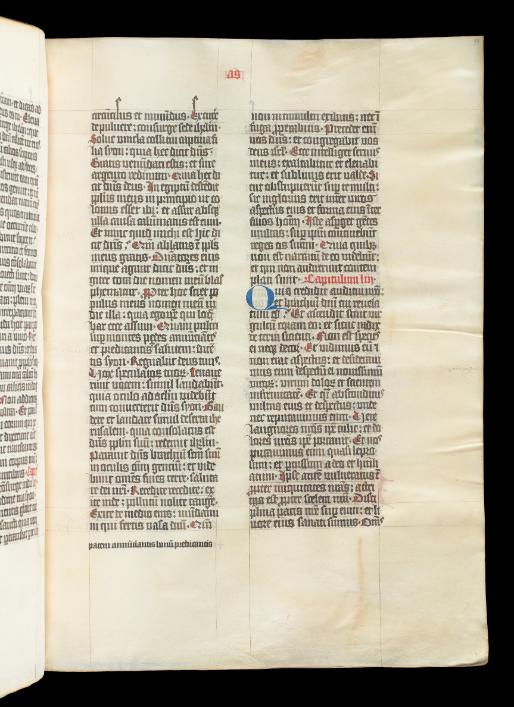 as
cucisus et immundus. Excute
de pulvere: consurge sede ihrlm
Solve vincla colli tui captiva fi
lia syon: quia hec dicit dns
Gratis venundati estis: et sine
argento redimemini. Quia hec di
cit dns deus. In egiptu descendit
pplus meus in principio ut co
lonus esset ibi: et assur absq
ulla causa calumniatus est eum.
Et nunc quid michi est hic di
cit dns
meus gratis. Dnatores eius
inique agunt dicit dns: et iu
giter tota die nomen meu blas
phematur. Propter hoc sciet po
pulus meus nomen meum in
die illa: quia ego ipse qui loq
bar ecce assum. Quam pulcri
sup montes pedes annunciantis
et predicantis salutem: dicetis
tis syon. Regnabit deus tuus.
Vox speculator tuor. levaver
runt vocem: simul laudabunt.
quia oculo ad oculu videbunt
cum converterit dns syon. Gau
dete et laudate simul deserta ihe
rusalem: quia consolatus est
dns pplm suu: redemit ihrlm.
Paravit dns brachiu scm suu
in oculis omi gencium: et vide
bunt omes fines terre: salutare
re dei nri. Recedite recedite: ex
ite inde: pollutu nolite tangere.
Exite de medio eius: mudamini
ni qui fertis vasa dni. Qm
patem annuciantis bonu predicantis
non in tumultu exibitis: nec i
fuga pperabitis. Precedet eni
vos dns: et congregabit vos
deus isrl. Ecce intelliget servus
meus: exaltabitur et elevabi
tur: et sublimis erit valde. Si
cut obstupuerut sup te multi:
sic inglorius erit inter viros
aspectus eius et forma eius int
filios hoim. Iste asperget getes
multas: sup ipsu continebut
reges os suum. Quia quibz
non est narratu de eo viderut:
et qui non audierunt contem
plati sunt. Capitulum liii.
Quis credidit auditui nro
et brachiu dni cui revela
tum est? Et ascendit sicut vir
gultu coram eo: et sicut radix
de terra sicienti. Non est species
ei neq decor. Et vidimus eum
non erat aspectus: et desideravi
mus eum despectu et novissimu
viror: virum doloru et scientem
infirmitatem. Et qsi absconditus
vultus eius et despectus: unde
nec reputavimus eum. Vere
languores nros ipe tulit: et do
lores nros ipe portavit. Et nos
putavimus eum quasi lepro
sum: et percussum a deo et humi
liatum. Ipse autem vulneratus e
ppter iniquitates nras: attri
tus est ppter scelera nra. Disci
plina pacis nre sup eum: et li
vore eius sanati sumus. Oms